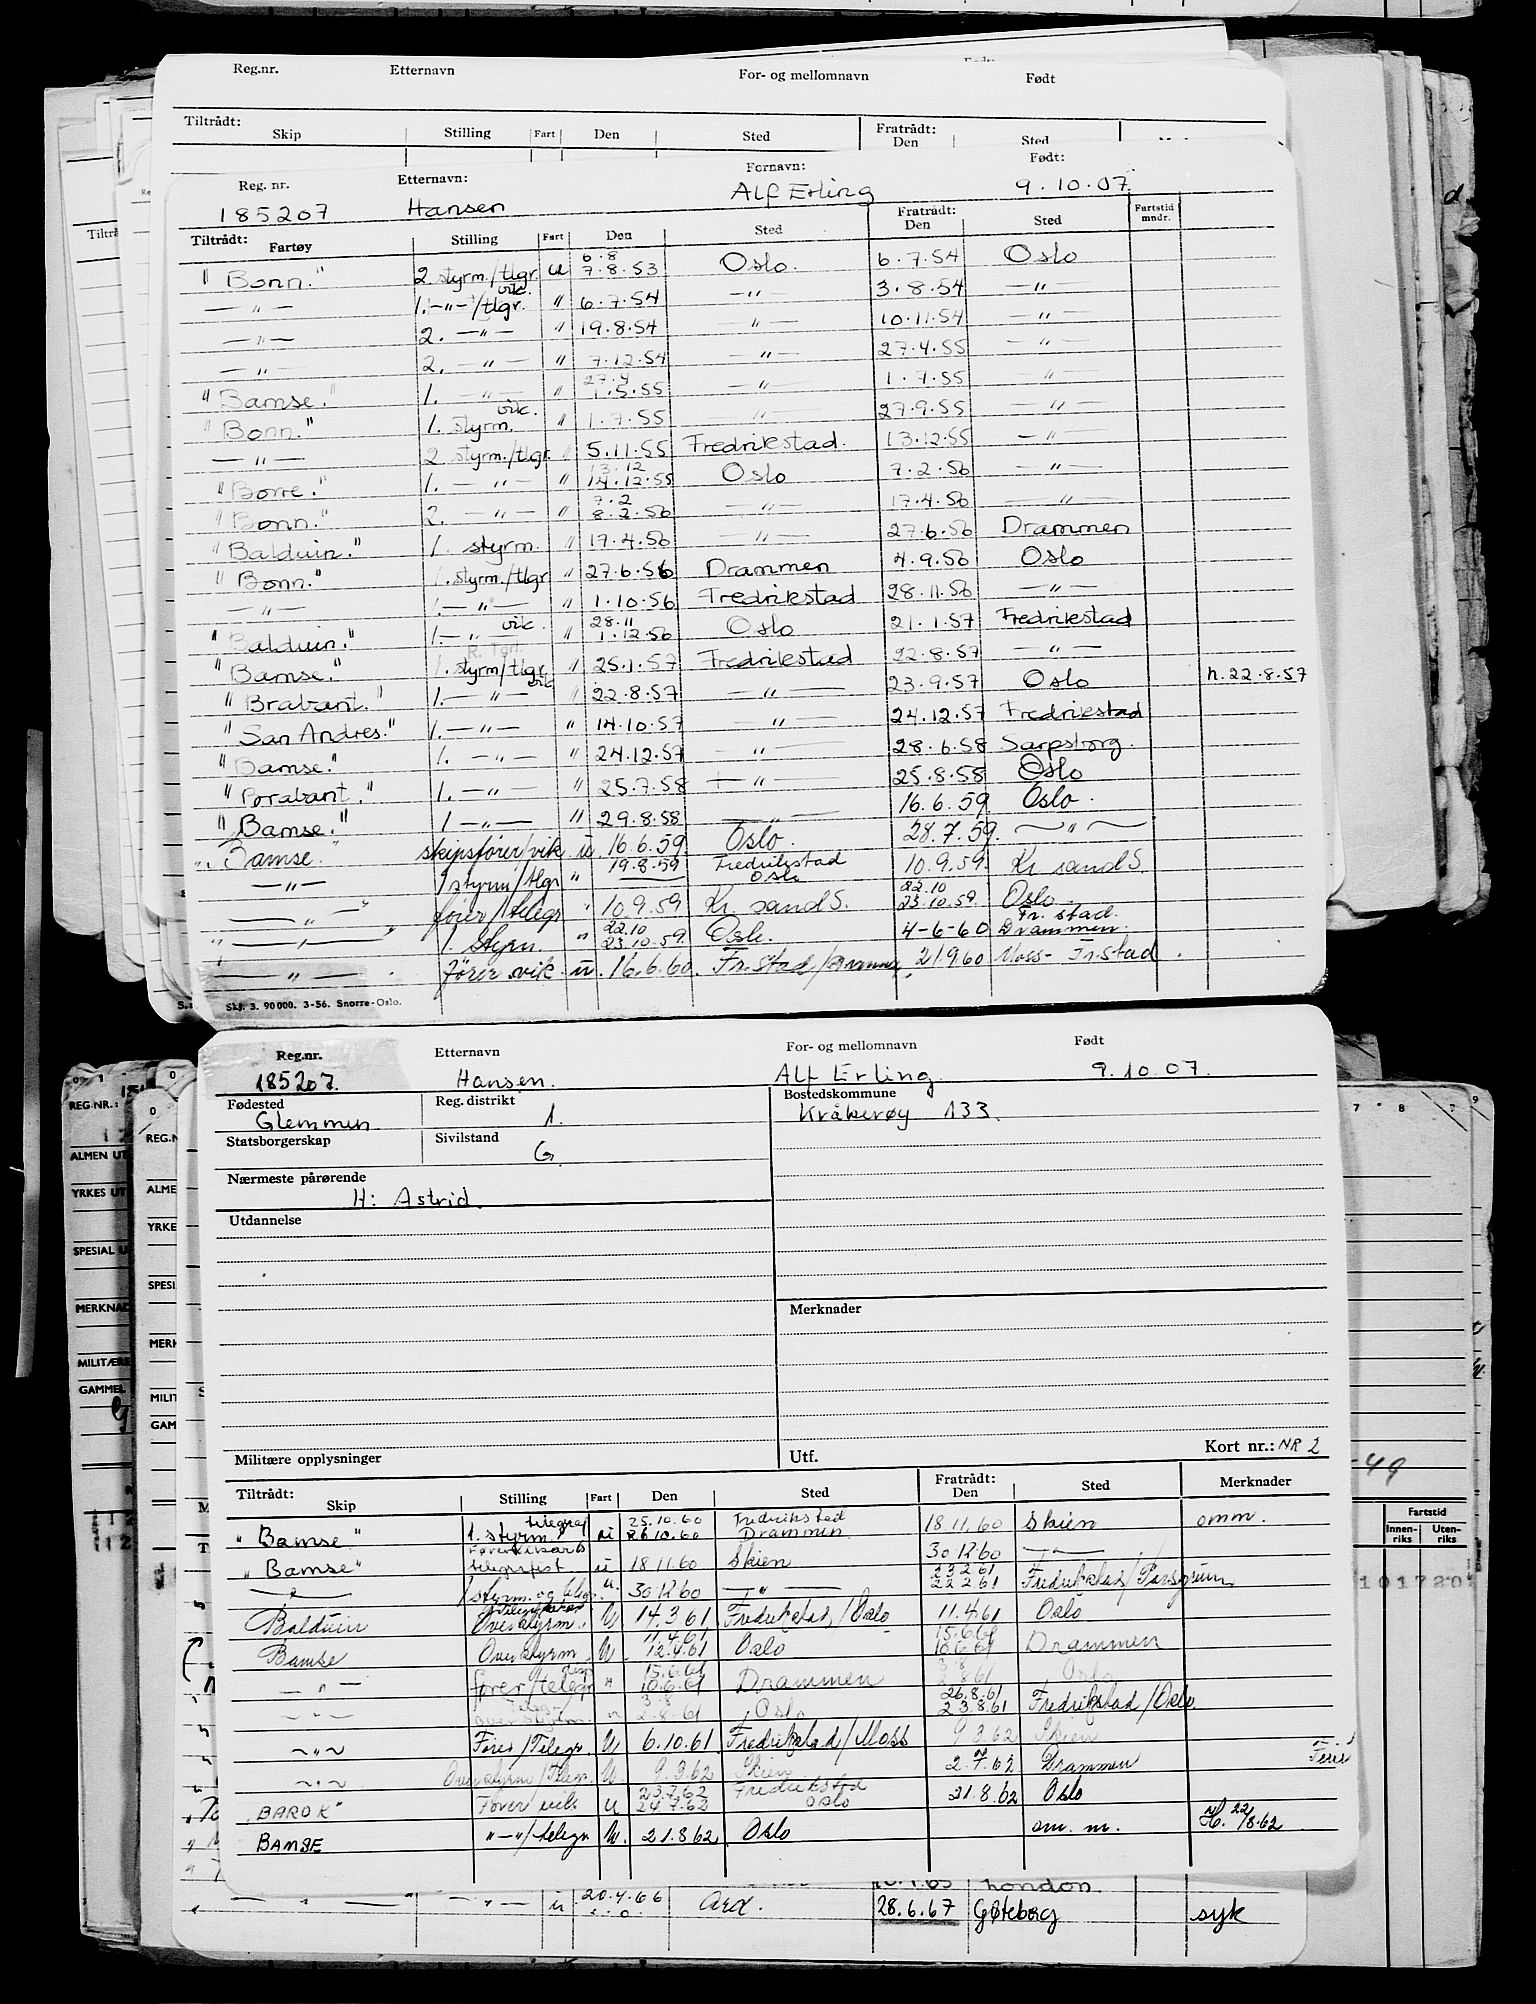 Reg.nr. Etternavn For- og mellomnavn Født
Tiltrådt: Skip Stilling Fart Den Sted Fratrådt: Den Sted
Reg. nr. Etternavn: Fornavn: Født:
185207 Hansen Alf Erling 9.10.07.
Tiltrådt: Fartøy Stilling Fart Den Sted Fratrådt: Den Sted Fartstid mndr.
"Bonn." 2 styrm./tlgr. u 6.8 7.8.53 Oslo. 6.7.54 Oslo
—"— 1.—"—/tlgr. vik. " 6.7.54 —"— 3.8.54 —"—
—"— 2. —"— " 19.8.54 —"— 10.11.54 —"—
—"— 2. —"— " 7.12.54 —"— 27.4.55 —"—
"Bamse." 1. —"— 27.4 1.5.55 —"— 1.7.55 —"—
"Bonn." 1. styrm. vik. " 1.7.55 —"— 27.9.55 —"—
—"— 2 styrm./tlgr. " 5.11.55 Fredrikstad. 13.12.55 —"—
"Borre." 1. —"— " 13.12 14.12.55 Oslo 7.2.56 —"—
"Bonn." 2. —"— " 7.2 8.2.56 —"— 17.4.56 —"—
"Balduin." 1. styrm. " 17.4.56 —"— 27.6.56 Drammen
"Bonn." 1. styrm./tlgr " 27.6.56 Drammen 4.9.56 Oslo
—"— 1.—"— " 1.10.56 Fredrikstad 28.11.56 —"—
"Balduin." 1.—"— vik. " 28.11 1.12.56 Oslo 21.1.57 Fredrikstad
"Bamse." 1. styrm/tlgr. " 25.1.57 Fredrikstad 22.8.57 —"—
"Brabant." 1.—"— vik " 22.8.57 —"— 23.9.57 Oslo h.22.8.57
"San Andres." 1.—"— " 14.10.57 —"— 24.12.57 Fredrikstad
"Bamse." 1. —"— " 24.12.57 —"— 28.6.58 Sarpsborg.
"Brabant." 1. —"— " 25.7.58 —"— 25.8.58 Oslo
"Bamse." 1 —"— " 29.8.58 —"— 16.6.59. Oslo.
"Bamse." skipsfører/vik u. 16.6.59 Oslo. 28.7.59. —"—
—"— 1 styrm/tlgr " 19.8.59 Fredrikstad Oslo 10.9.59. Kr. sand S.
—"— fører/telegr " 10.9.59 Kr. sand S. 22.10 23.10.59. Oslo.
—"— 1. styrm. " 22.10 23.10.59. Oslo. 4-6-60 Fr. stad. Drammen.
—"— fører vik. u. 16.6.60. Fr. stad/Drammen 21.9.60 Moss- Fr. stad.
Skj. 3. 90000. 3-56. Snorre-Oslo.
Reg.nr. Etternavn For- og mellomnavn Født
185207. Hansen. Alf Erling. 9.10.07.
Fødested Reg. distrikt Bostedskommune
Glemmen 1. Kråkerøy 133.
Statsborgerskap Sivilstand
G
Nærmeste pårørende
H: Astrid.
Utdannelse
Merknader
Militære opplysninger Utf. Kort nr.: NR 2
Tiltrådt: Skip Stilling Fart Den Sted Fratrådt: Den Sted Merknader
"Bamse" 1. styrm/ telegraf ui 25.10.60 26.10.60 Fredrikstad Drammen. 18.11.60 Skien omm.
"Bamse" telegrafist u 18.11.60 Skien 30.12.60 —"—
—"— 1 styrm. og telegr. u. 30.12.60 —"— 23.2.61 22.2.61 Fredrikstad/Porsgrunn
Balduin Overstyrm. U 14.3.61 Fredrikstad/Oslo 11.4.61 Oslo
Bamse Overstyrm. U 11.4.61 12.4.61 Oslo 15.6.61 10.6.61 Drammen
—"— fører/telegr " 15.6.61 10.6.61 Drammen 3.8 2.8.61 Oslo
—"— overstyrm. " 3.8 2.8.61 Oslo 26.8.61 23.8.61 Fredrikstad/Oslo.
—"— Fører/Telegr. U 6.10.61 Fredrikstad/Moss 9.3.62 Skien
—"— Overstyrm/Telegr. U. 9.3.62 Skien 2.7.62 Drammen Ferie
"BAROK" Fører vik u 23.7.62 24.7.62 Fredrikstad Oslo 21.8.62 Oslo
BAMSE "—"/telegr U. 21.8.62 Oslo om. m. H. 22/8.62
—"— —"— u 20.4.66 Ard. 28.6.67 Gøteborg syk
London.
REG.NR.:
ALMEN UT
YRKES UT
SPESIAL U
MERKNAD
MILITÆRE
GAMMEL
-49
Fartstid
Innen-riks Uten-riks